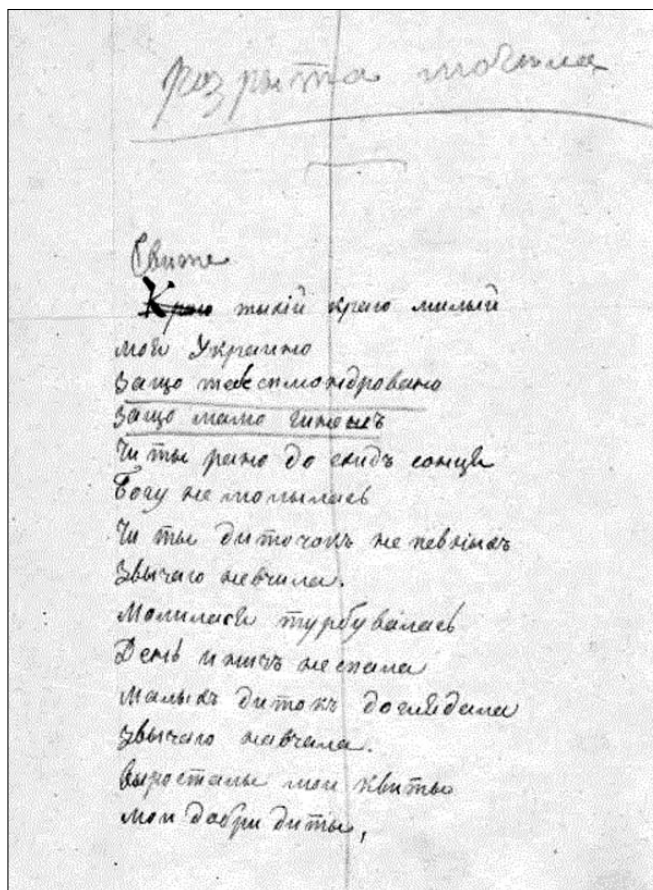 розрыта могила
Свите
Краю тыхій краю милый
моя Украино
Защо тебе сплюндровано
Защо мамо гинешъ
Чи ты рано до схидъ сонця
Богу не молылась
Чи ты диточокъ не певныхъ
Звычаю невчила.
Молилася турбувалась
День и ничъ не спала
Малыхъ дитокъ доглядала
Звычаю навчала.
Выросталы мои квиты
мои добри диты,